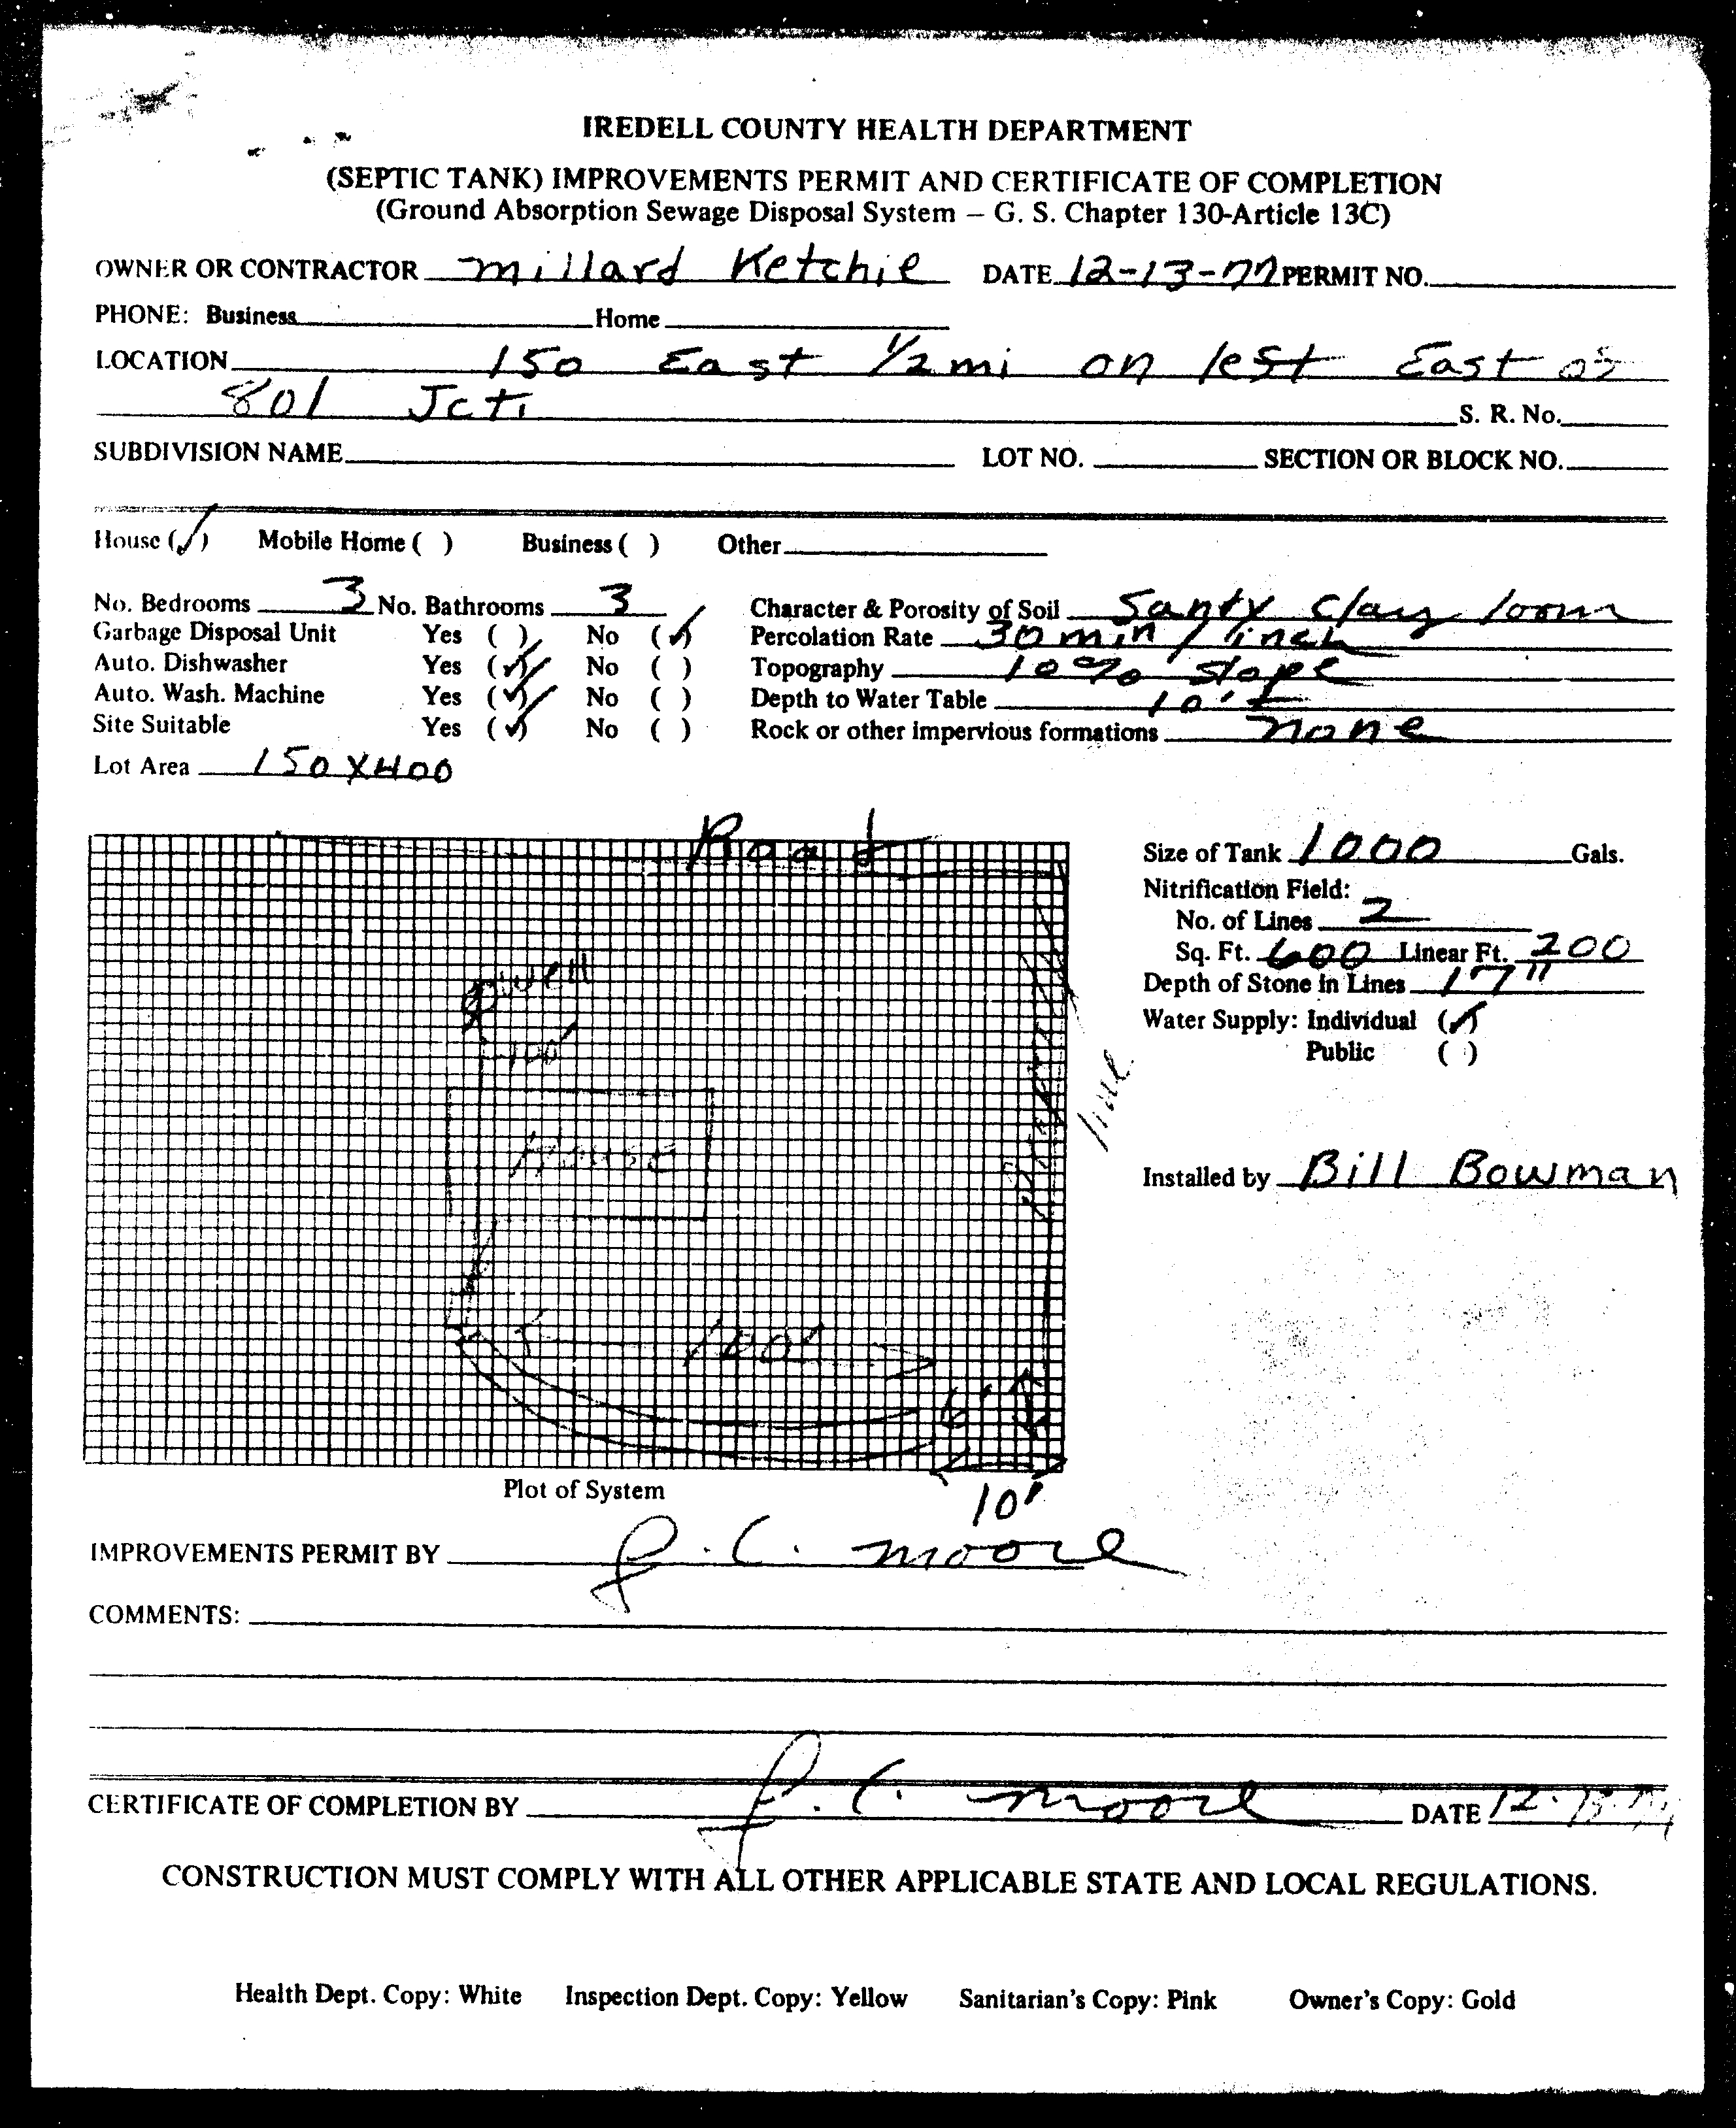 IREDELL COUNTY HEALTH DEPARTMENT
(SEPTIC TANK) IMPROVEMENTS PERMIT AND CERTIFICATE OF COMPLETION
(Ground Absorption Sewage Disposal System – G. S. Chapter 130-Article 13C)
OWNER OR CONTRACTOR Millard Ketchie DATE 12-13-77 PERMIT NO.
PHONE: Business Home
LOCATION 150 East 1/2 mi on left East of
801 Jct.
S. R. No.
SUBDIVISION NAME LOT NO. SECTION OR BLOCK NO.
House (✓) Mobile Home ( ) Business ( ) Other
No. Bedrooms 3 No. Bathrooms 3 Character & Porosity of Soil Santy clay loom
Garbage Disposal Unit Yes ( ) No (✓) Percolation Rate 30 min / inch
Auto. Dishwasher Yes (✓) No ( ) Topography 10% slope
Auto. Wash. Machine Yes (✓) No ( ) Depth to Water Table 10' ±
Site Suitable Yes (✓) No ( ) Rock or other impervious formations none
Lot Area 150 X 400
Road
Size of Tank 1000 Gals.
Nitrification Field:
No. of Lines 2
Sq. Ft. 600 Linear Ft. 200
Depth of Stone in Lines 17"
Water Supply: Individual (✓)
Public ( )
well
100'
line
House
Installed by Bill Bowman
100'
6'
10'
Plot of System
IMPROVEMENTS PERMIT BY J. C. Moore
COMMENTS:
CERTIFICATE OF COMPLETION BY J. C. Moore DATE
CONSTRUCTION MUST COMPLY WITH ALL OTHER APPLICABLE STATE AND LOCAL REGULATIONS.
Health Dept. Copy: White Inspection Dept. Copy: Yellow Sanitarian's Copy: Pink Owner's Copy: Gold